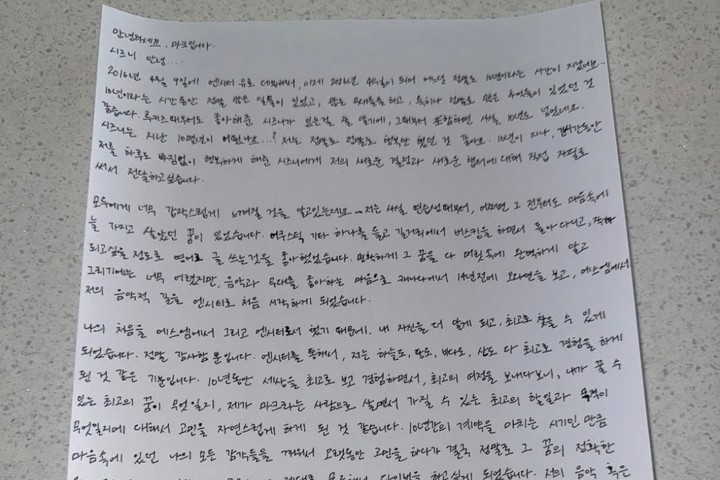 안녕하세요, 마크입니다.
시즈니 안녕...
2016년 4월 9일에 엔시티 유로 데뷔해서, 이제 2026년 4월이 되어 어느덧 정말로 10년이라는 시간이 지났네요..
10년이라는 시간동안 정말 많은 일들이 있었고, 많은 무대들을 하고, 특히나 정말로 많은 추억들이 있었던 것
같습니다. 루키즈때부터도 좋아해준 시즈니가 있는걸 잘 알기에, 그때부터 포함하면 사실 10년도 넘었네요.
시즈니는 지난 10몇년이 어땠나요...? 저는 정말로 정말로 행복만 했던 것 같아요. 10년이 지나, 긴시간동안
저를 하루도 빠짐없이 행복하게 해준 시즈니에게 저의 새로운 결정과 새로운 챕터에 대해 직접 자필로
써서 전달하고싶습니다.
모두에게 너무 갑작스럽게 느껴질 것을 알고있는데요.. 저는 사실 연습생때부터, 어쩌면 그 전부터도 마음속에
늘 가지고 살았던 꿈이 있었습니다. 어쿠스틱 기타 하나를 들고 길거리에서 버스킹을 하면서 돌아다니고, 작가
되고싶을 정도로 영어로 글 쓰는것을 좋아했었습니다. 명확하게 그 꿈을 다 머릿속에 완벽하게 알고
그리기에는 너무 어렸지만, 음악과 무대를 좋아하는 마음으로 캐나다에서 14년전에 오디션을 보고, 에스엠에서
저의 음악적 길을 엔시티로 처음 시작하게 되었습니다.
나의 처음을 에스엠에서 그리고 엔시티로서 했기 때문에, 내 자신을 더 알게 되고, 최고로 찾을 수 있게
되었습니다. 정말 감사할 뿐입니다. 엔시티를 통해서, 저는 하늘도, 땅도, 바다도, 산도 다 최고로 경험을 하게
된 것 같은 기분입니다. 10년동안 세상을 최고로 보고 경험하면서, 최고의 여정을 보내다보니, 내가 꿀 수
있는 최고의 꿈이 무엇일지, 제가 마크라는 사람으로 살면서 가질 수 있는 최고의 할일과 목적이
무엇일지에 대해서 고민을 자연스럽게 하게 된 것 같습니다. 10년간의 계약을 마치는 시기인 만큼
마음속에 있던 나의 모든 감각들을 깨워서 오랫동안 고민을 하다가 결국 정말로 그 꿈의 정확한
제대로 하고싶게 되었습니다. 저의 음악 혹은